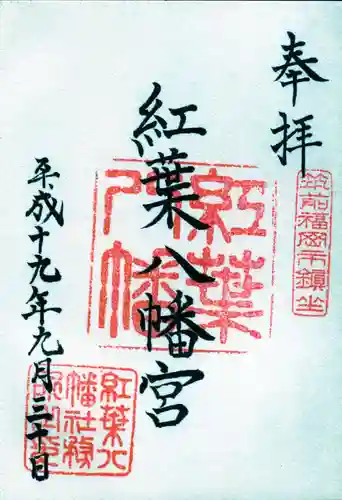 奉拝
筑前福岡市鎮坐
紅葉八幡宮
紅葉八幡
平成十九年九月三十日
紅葉八幡社務